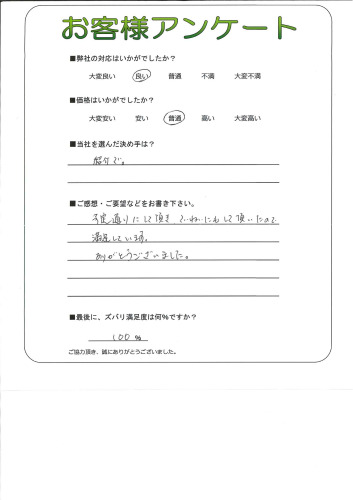 お客様アンケート
■弊社の対応はいかがでしたか？
大変良い 良い 普通 不満 大変不満
■価格はいかがでしたか？
大変安い 安い 普通 高い 大変高い
■当社を選んだ決め手は？
紹介で。
■ご感想・ご要望などをお書き下さい。
予定通りにして頂き ていねいにもして頂いたので
満足しています。
ありがとうございました。
■最後に、ズバリ満足度は何％ですか？
100 %
ご協力頂き、誠にありがとうございました。